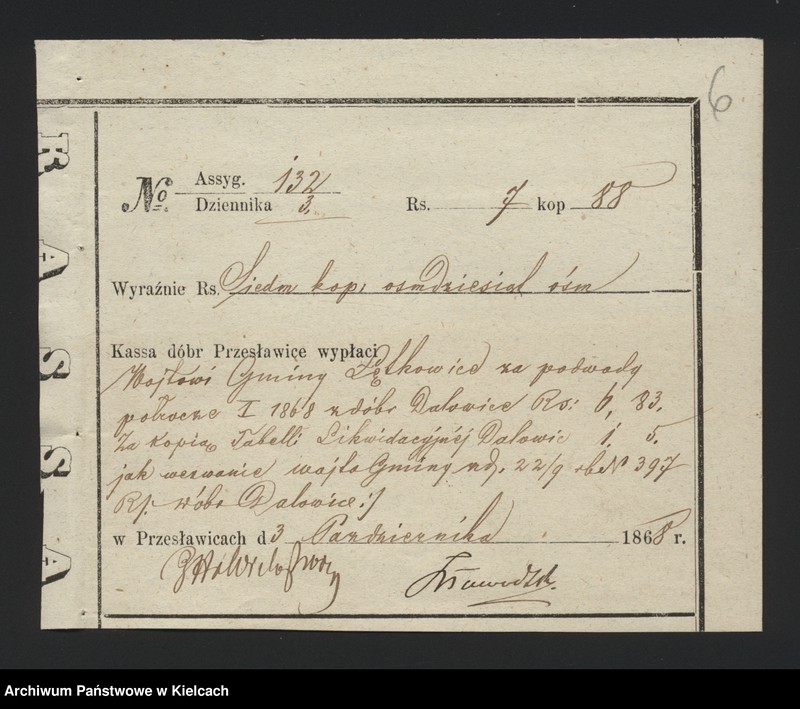 6
KASSA
№ Assyg. 132
Dziennika 3.
Rs. 7 kop 88
Wyraźnie Rs. Siedm kop: osmdziesiąt ośm
Kassa dóbr Przesławice wypłaci
Wojtowi Gminy Łętkowice za podwody
półrocze I 1868 z dóbr Dalowice Rs: 6, 83.
Za kopią Tabelli Likwidacyjnéj Dalowic 1. 5.
jak wezwanie wojta Gminy z d. 22/9 rb № 397
Dalowice:/
w Przesławicach d 3 Pazdziernika 1868 r.
Archiwum Państwowe w Kielcach